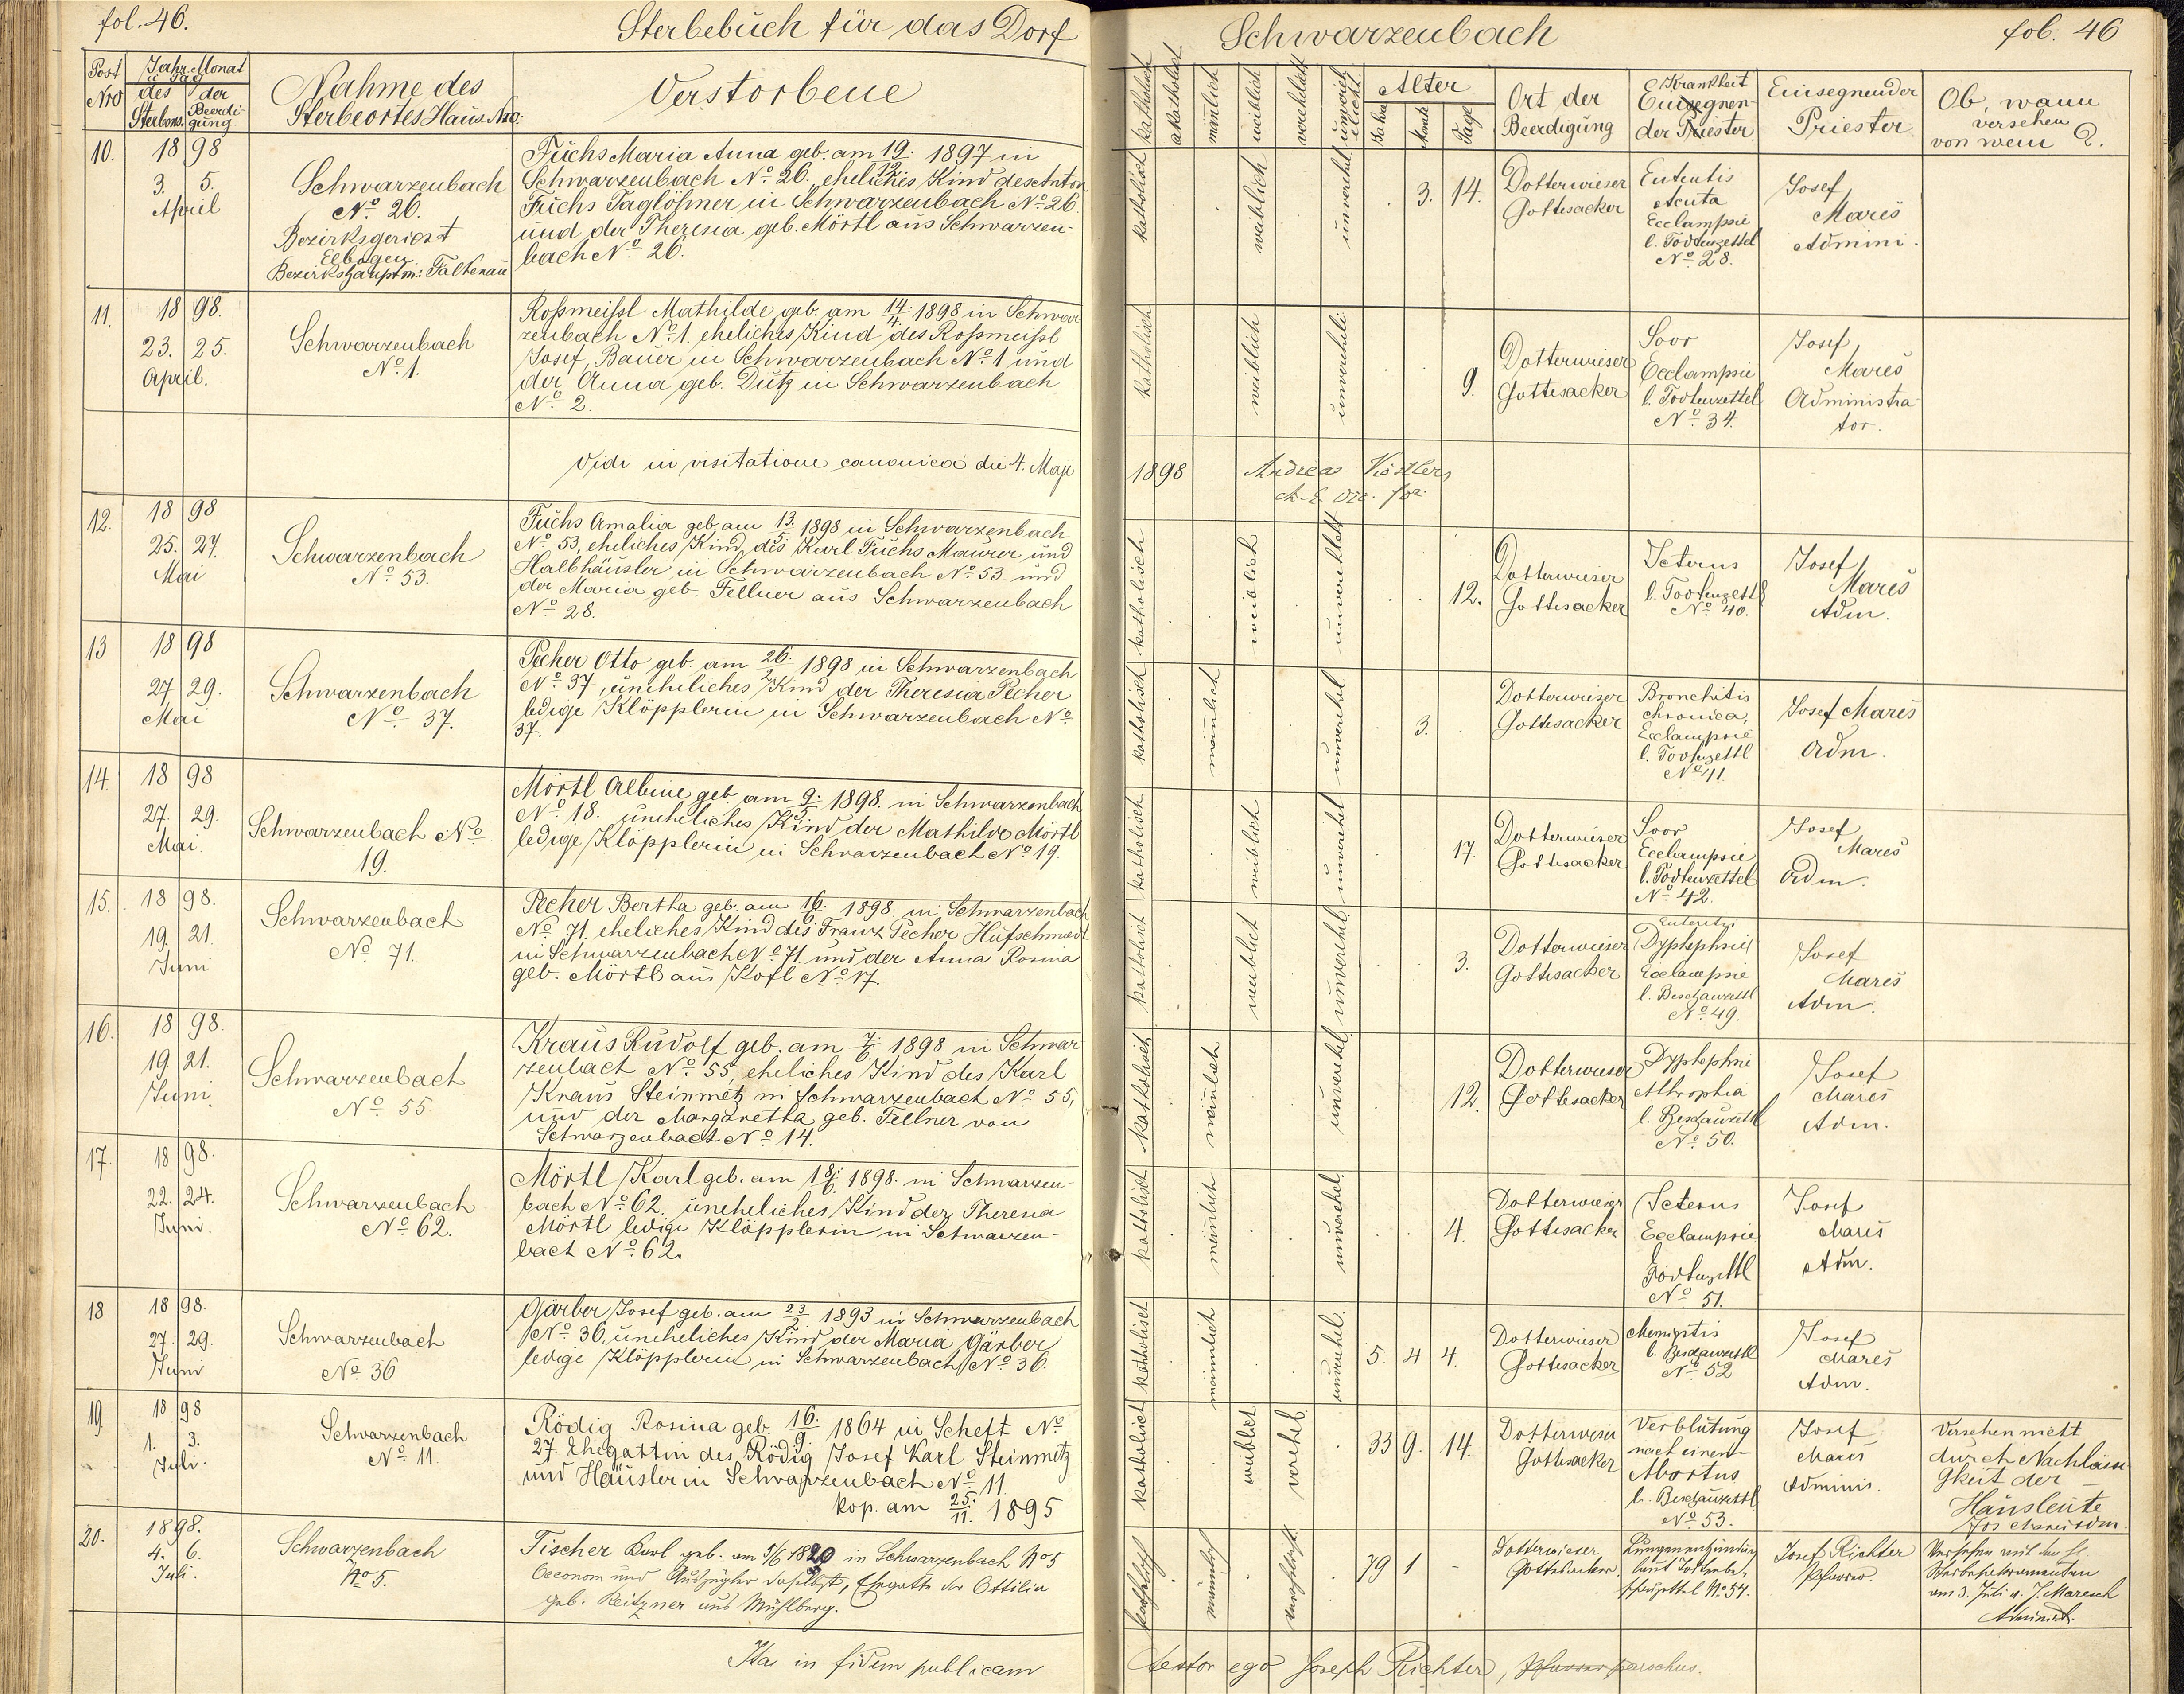 fol. 46.
Sterbebuch für das Dorf
Schwarzenbach
fol. 46
Post Nro
Jahr, Monat u Tag
des Sterbens.
der Beerdigung.
Nahme des
Sterbeortes Haus Nro:
Verstorbene
katholisch
akatholisch
mänlich
weiblich
verehelicht
unverehelicht.
Alter
Jahre
Monate
Tage
Ort der
Beerdigung
Krankheit
Einsegnen-
der Priester
Einsegnender
Priester
Ob, wann
versehen
von wem ?.
10.
18 98
3. 5.
April
Schwarzenbach
No. 26.
Bezirksgericht
Elbogen
Bezirkshauptm: Falkenau
Fuchs Maria Anna geb. am 19./12 1897 in
Schwarzenbach No. 26. eheliches Kind des Anton
Fuchs Taglöhner in Schwarzenbach No 26.
und der Theresia geb. Mörtl aus Schwarzen-
bach No. 26.
katholisch
weiblich
unverehel.
3. 14.
Dotterwieser
Gottesacker
Acuta
Ecclampsie
l. Todtenzettel
No. 28.
Josef
Mareš
Admini.
11.
18 98.
23. 25.
April.
Schwarzenbach
No. 1.
Roßmeißl Mathilde geb. am 14./4 1898 in Schwar
zenbach No. 1. eheliches Kind des Roßmeißl
Josef, Bauer in Schwarzenbach No. 1 und
der Anna geb. Dutz in Schwarzenbach
No. 2.
katholisch
weiblich
unvereheli
9.
Dotterwieser
Gottesacker
Soor
Ecclampsie
l. Todtenzettel
No. 34.
Josef
Mareš
Administra
tor.
Vidi in visitatione canonica die 4. Maji
1898 Andreas
12.
18 98
25. 27.
Mai
Schwarzenbach
No. 53.
Fuchs Amalia geb. am 13./5. 1898 in Schwarzenbach
No. 53, eheliches Kind des Karl Fuchs Maurer und
Halbhäusler in Schwarzenbach No. 53. und
der Maria geb. Fellner aus Schwarzenbach
No. 28.
katholisch
weiblich
unverehelicht
12.
Dotterwieser
Gottesacker
Icterus
l. Todtenzettl
No. 40.
Josef
Mareš
Adm.
13
18 98
27 29.
Mai
Schwarzenbach
No. 37.
Pecher Otto geb. am 26./2 1898 in Schwarzenbach
No. 37, uneheliches Kind der Theresia Pecher
ledige Klöpplerin in Schwarzenbach No.
37.
katholisch
mänlich
unverehel
3.
Dotterwieser
Gottesacker
Bronchitis
chronica,
Ecclampsie
l. Todtenzettl
No. 41.
Josef Mareš
Adm.
14.
18 98
27. 29.
Mai.
Schwarzenbach No.
19.
Mörtl Albine geb. am 9./5 1898. in Schwarzenbach
No. 18. uneheliches Kind der Mathilde Mörtl
ledige Klöpplerin in Schwarzenbach No. 19.
katholisch
weiblich
unverehel
17.
Dotterwieser
Gottesacker
Soor
Ecclampsie
l. Todtenzettel
No. 42.
Josef
Mareš
Adm.
15.
18 98.
19. 21.
Juni
Schwarzenbach
No. 71.
Pecher Bertha geb. am 16./6. 1898. in Schwarzenbach
No. 71. eheliches Kind des Franz Pecher Hufschmied
in Schwarzenbach No. 71 und der Anna Rosina
geb. Mörtl aus Kofl No. 17.
katholisch
weiblich
unverehel.
3.
Dotterwieser
Gottesacker
Ecclampsie
l. Beschauzettl
No. 49.
Josef
Mareš
Adm.
16.
18 98.
19 21.
Juni.
Schwarzenbach
No. 55
Kraus Rudolf geb. am 7./6. 1898. in Schwar
zenbach No. 55, eheliches Kind des Karl
Kraus Steinmetz in Schwarzenbach No. 55,
und der Margaretha geb. Fellner von
Schwarzenbach No. 14.
katholisch
mänlich
unverehel
12.
Dotterwieser
Gottesacker
Dyptephrie
Athrophia
l. Beschauzettl
No. 50.
Josef
Mareš
Adm.
17.
18 98.
22. 24.
Juni.
Schwarzenbach
No. 62.
Mörtl Karl geb. am 18./6. 1898. in Schwarzen-
bach No. 62. uneheliches Kind der Theresia
Mörtl ledige Klöpplerin in Schwarzen-
bach No. 62.
katholisch
mänlich
unverehel
4.
Dotterwieser
Gottesacker
Icterus
Ecclampsie
l.
Todtenzettl
No. 51.
Josef
Mareš
Adm.
18
18 98.
27. 29.
Juni
Schwarzenbach
No. 36
Gärber Josef geb. am 23/2. 1893 in Schwarzenbach
No. 36, uneheliches Kind der Maria Gärber
ledige Klöpplerin in Schwarzenbach No. 36.
katholisch
mänlich
unverehel.
5. 4 4.
Dotterwieser
Gottesacker
l. Beschauzettl
No. 52
Josef
Mareš
Adm.
19
18 98
1. 3.
Juli.
Schwarzenbach
No. 11.
Rödig Rosina geb. 16./9 1864 in Scheft No.
27. Ehegattin des Rödig Josef Karl Steinmetz
und Häusler in Schwarzenbach No. 11.
kop. am 25./11. 1895
katholisch
weiblich
verehel.
33 9. 14.
Dotterwieser
Gottesacker
Verblutung
nach einem
Abortus
l. Beschauzettl
No. 53.
Josef
Mareš
Adminis.
Versehen nicht
durch Nachlässi
gkeit der
Hausleute
Jos Mareš Adm.
20.
1898.
4. 6.
Juli.
Schwarzenbach
No 5.
Fischer Karl geb. am 5/6 1820 in Schwarzenbach No 5
Oeconom und Auszügler daselbst, Ehegatte der Ottilia
geb. Reitzner aus Mühlberg.
katholisch
männlich
verehelicht
79 1 -
Dotterwieser
Gottesacker
Lungenentzündung
laut Todtenbe-
schauzettel No 54.
Josef Richter
Pfarrer.
Versehen mit den hl.
Sterbesakramenten
am 3. Juli v. J. Maresch
Administ.
Ita in fidem publicam
testor ego Joseph Richter, Pfarrer parochus.